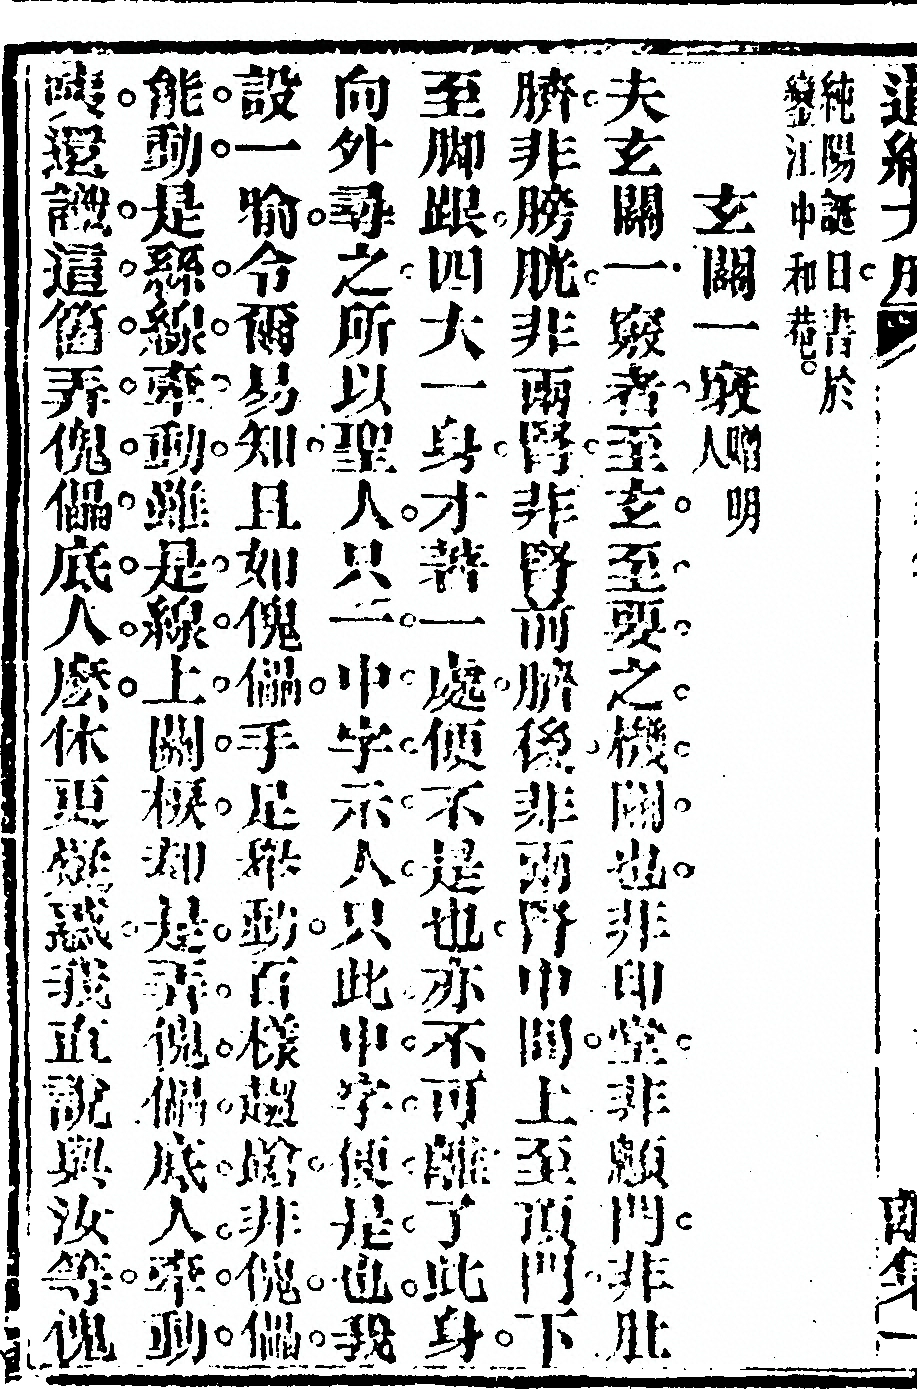 道統大成
純陽誕日書於
鑾江中和菴。
玄關一竅贈明人
夫玄關一竅者至玄至要之機關也非印堂非顖門非肚
臍非膀胱非兩腎非腎前臍後非兩腎中間上至頂門下
至脚跟四大一身才著一處便不是也亦不可離了此身
向外尋之所以聖人只一中字示人只此中字便是也我
設一喻令爾易知且如傀儡手足舉動百樣趨蹌非傀儡
能動是絲線牽動雖是線上關棙却是弄傀儡底人牽動
咦還識這箇弄傀儡底人麼休更疑惑我直說與汝等傀